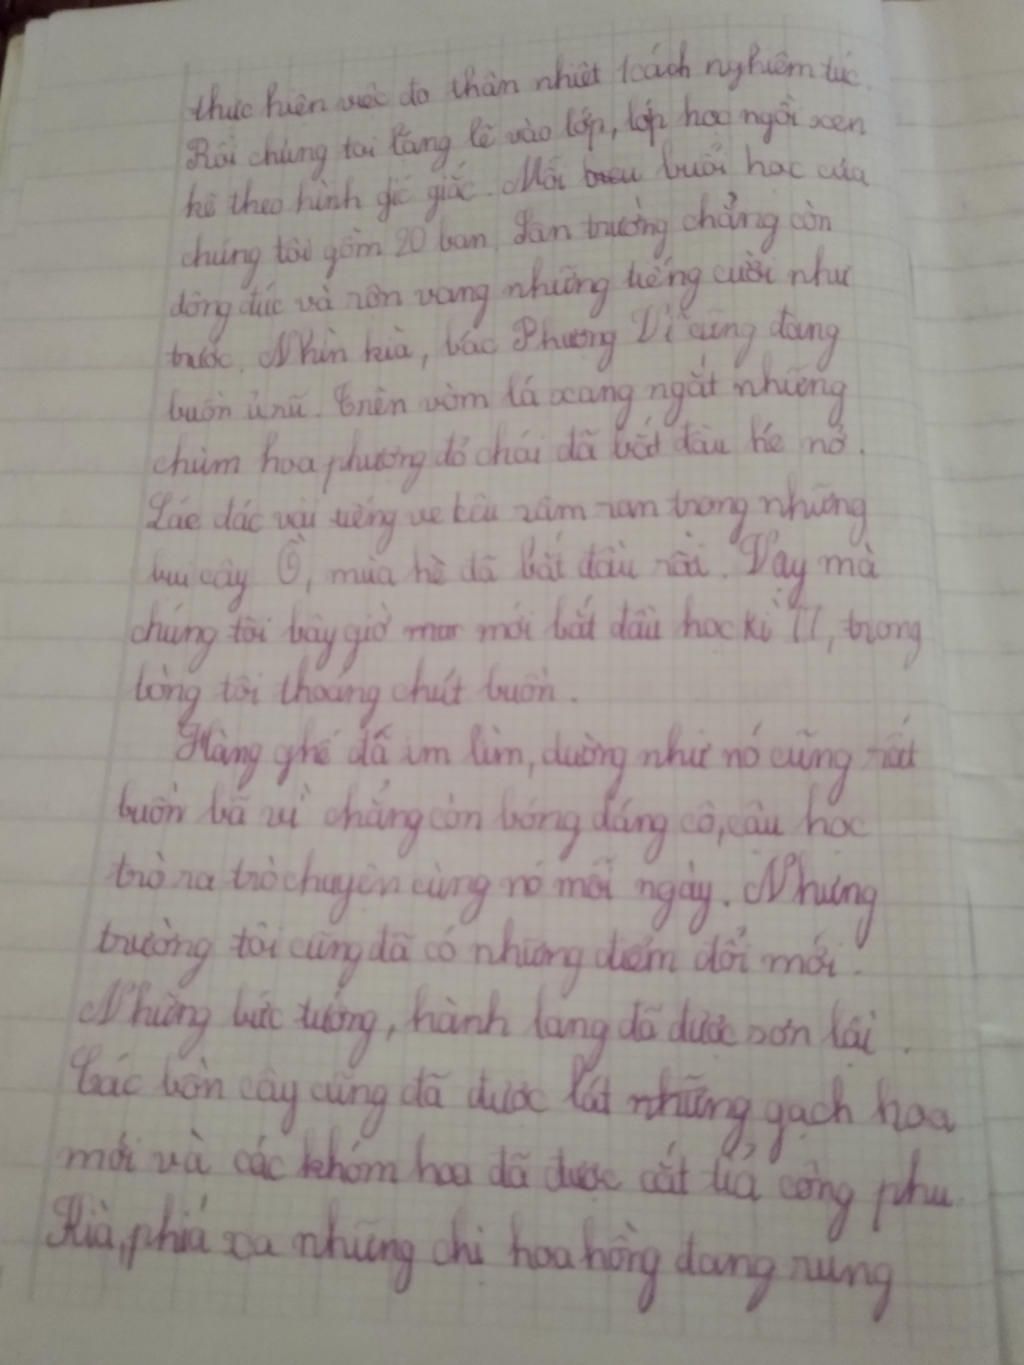 thực hiện việc đo thân nhiệt 1 cách nghiêm túc.
Rồi chúng tôi lẳng lẽ vào lớp, lớp học ngồi xen
kẽ theo hình gic giắc. Mỗi buổi học của
chúng tôi gồm 20 bạn. Sân trường chẳng còn
đông đúc và rộn vang những tiếng cười như
trước. Nhìn kìa, bác Phượng Vĩ cũng đang
buồn ủ rũ. Trên vòm lá xang ngắt những
chùm hoa phượng đỏ chói đã bắt đầu hé nở.
Lác đác vài tiếng ve kêu râm ran trong những
bụi cây Ồ, mùa hè đã bắt đầu rồi. Vậy mà
chúng tôi bây giờ mới bắt đầu học kì II, trong
lòng tôi thoáng chút buồn.
Hàng ghế đá im lìm, dường như nó cũng rất
buồn bã vì chẳng còn bóng dáng cô, cậu học
trò ra trò chuyện cùng nó mỗi ngày. Nhưng
trường tôi cũng đã có những điểm đổi mới.
Những bức tường, hành lang đã được sơn lại.
Các bồn cây cũng đã được lát những gạch hoa
mới và các khóm hoa đã được cắt tỉa công phu
Kìa, phía xa những chị hoa hồng đang rung